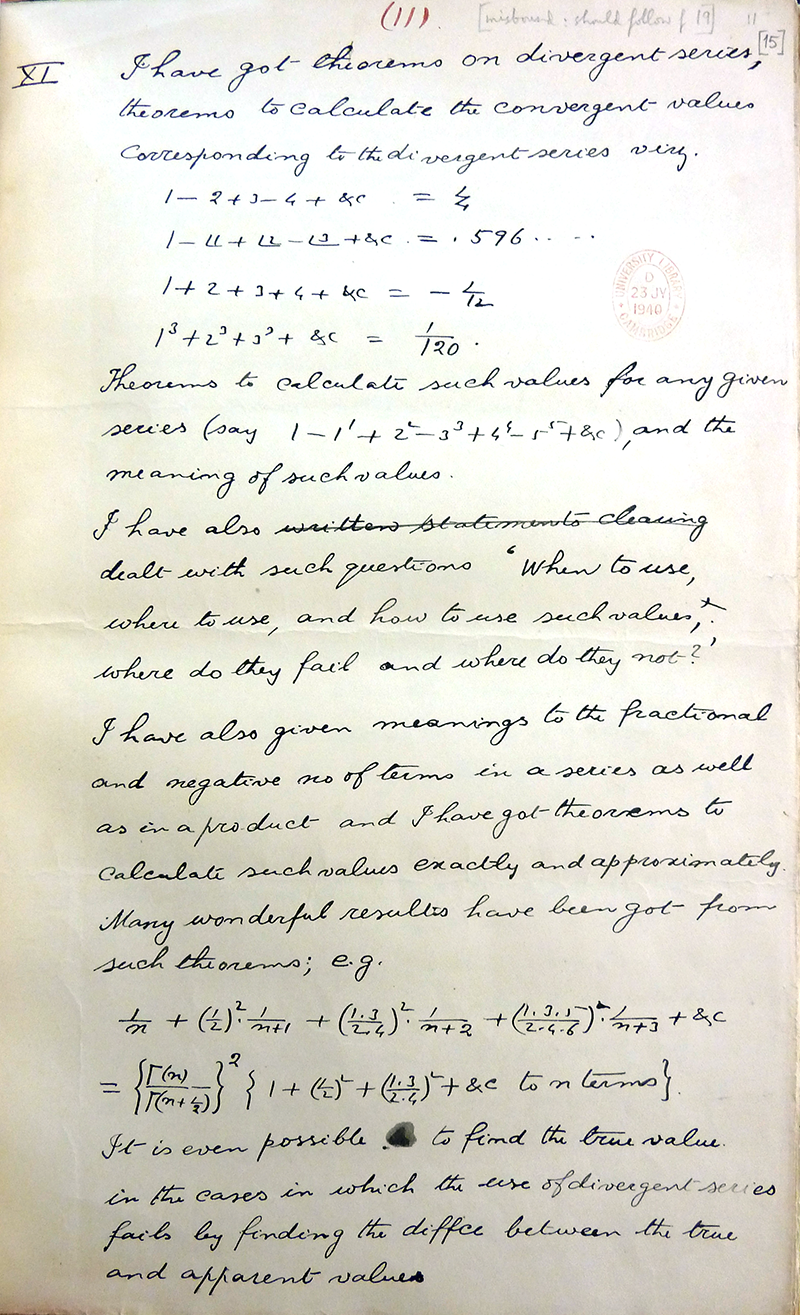 (11) [misbound: should follow f 19] 11
[15]
XI
I have got theorems on divergent series,
theorems to calculate the convergent values
corresponding to the divergent series viz.
1 − 2 + 3 − 4 + &c = 1/4
1 − |1 + |2 − |3 + &c = .596.. ..
1 + 2 + 3 + 4 + &c = − 1/12
UNIVERSITY LIBRARY
D
23 JY
1940
CAMBRIDGE
1³ + 2³ + 3³ + &c = 1/120.
Theorems to calculate such values for any given
series (say 1 − 1¹ + 2² − 3³ + 4⁴ − 5⁵ + &c), and the
meaning of such values.
I have also written statements clearing
dealt with such questions ‘When to use,
where to use, and how to use such values,
where do they fail and where do they not?’
I have also given meanings to the fractional
and negative no of terms in a series as well
as in a product and I have got theorems to
calculate such values exactly and approximately.
Many wonderful results have been got from
such theorems; e.g.
1/n + (1/2)² · 1/(n+1) + (1·3/2·4)² · 1/(n+2) + (1·3·5/2·4·6)² · 1/(n+3) + &c
= {Γ(n)/Γ(n+1/2)}² {1 + (1/2)² + (1·3/2·4)² + &c to n terms}.
It is even possible to find the true value
in the cases in which the use of divergent series
fails by finding the diffce between the true
and apparent values